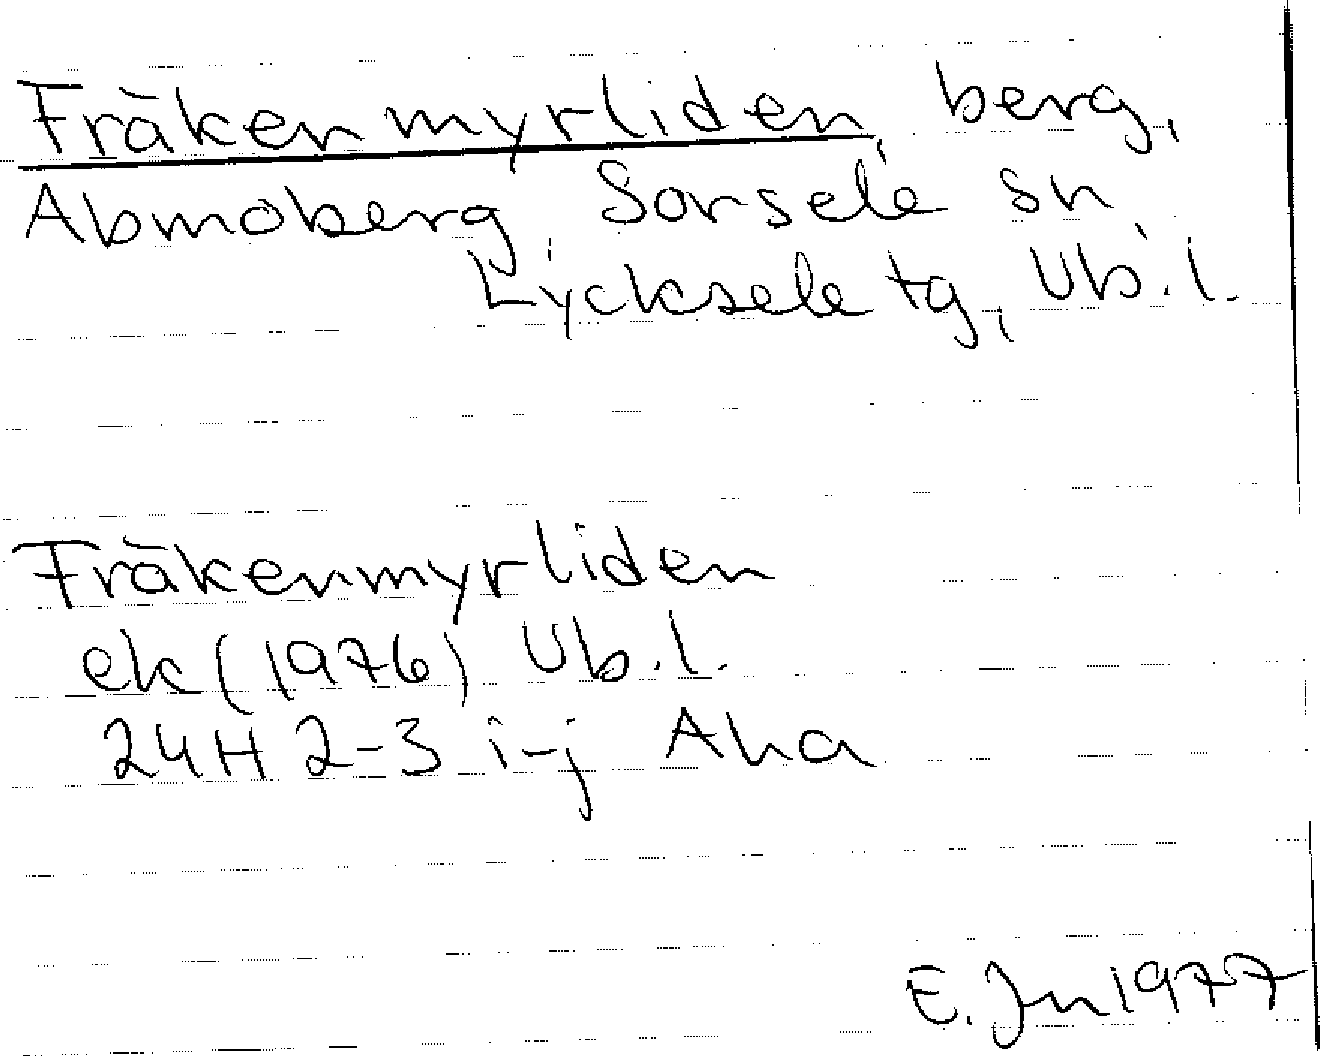 Fräkenmyrliden, berg,
Abmoberg, Sorsele sn,
Lycksele tg, Vb. l.
Fräkenmyrliden
ek (1976) Vb. l.
24H 2-3 i-j Aha
E. Jn 1977